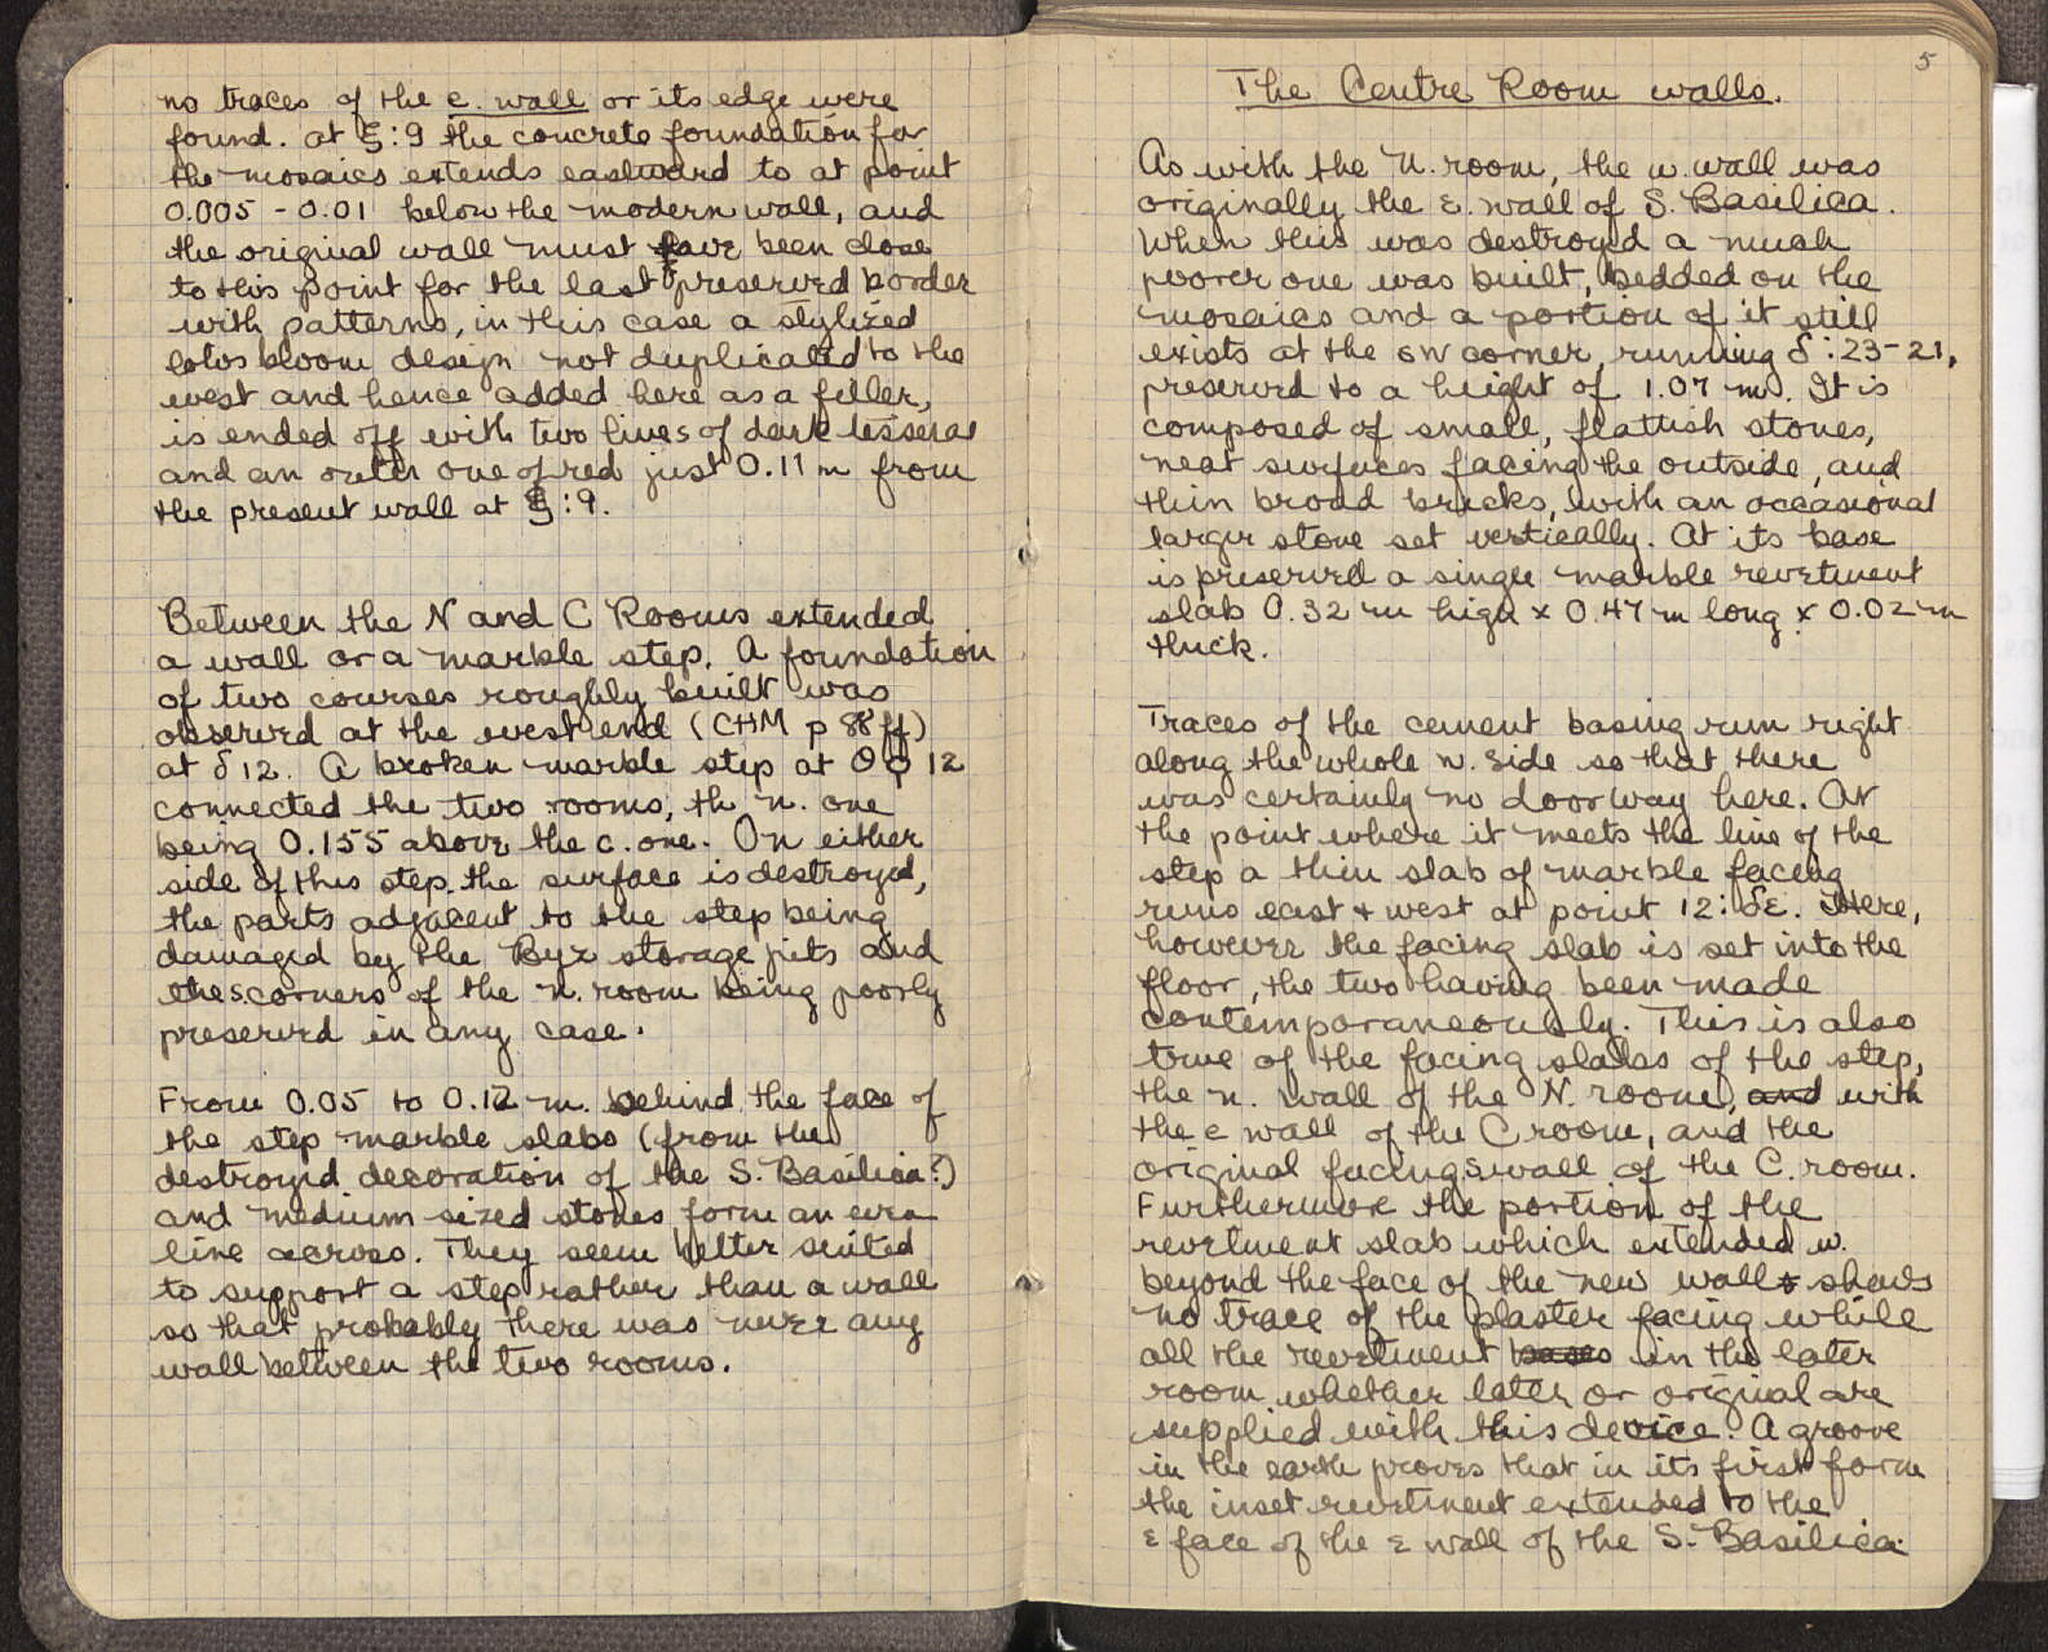 no traces of the e. wall or its edge were
found. at ξ:9 the concrete foundation for
the mosaics extends eastward to at point
0.005 - 0.01 below the modern wall, and
the original wall must have been close
to this point for the last preserved border
with patterns, in this case a stylized
lotus bloom design not duplicated to the
west and hence added here as a filler,
is ended off with two lines of dark tesserae
and an outer one of red just 0.11 m from
the present wall at ξ:9.
Between the N and C Rooms extended
a wall or a marble step. A foundation
of two courses roughly built was
observed at the west end (CHM p 88 ff)
at δ 12. A broken marble step at 12
connected the two rooms, th n. one
being 0.155 above the c. one. On either
side of this step the surface is destroyed,
the parts adjacent to the step being
damaged by the Byz storage pits and
the s. corners of the n. room being poorly
preserved in any case.
From 0.05 to 0.12 m. behind the face of
the step marble slabs (from the
destroyed decoration of the S. Basilica?)
and medium sized stones form an even
line across. They seem better suited
to support a step rather than a wall
so that probably there was never any
wall between the two rooms.
5
The Centre Room walls.
As with the N. room, the w. wall was
originally the E. wall of S. Basilica.
When this was destroyed a much
poorer one was built, bedded on the
mosaics and a portion of it still
exists at the SW corner, running δ:23-21,
preserved to a height of 1.07 m. It is
composed of small, flattish stones,
neat surfaces facing the outside, and
thin broad bricks, with an occasional
larger stone set vertically. At its base
is preserved a single marble revetment
slab 0.32 m high x 0.47 m long x 0.02 m
thick.
Traces of the cement basing run right
along the whole w. side so that there
was certainly no doorway here. At
the point where it meets the line of the
step a thin slab of marble facing
runs east + west at point 12:δε. Here,
however the facing slab is set into the
floor, the two having been made
contemporaneously. This is also
true of the facing slabs of the step,
the n. wall of the N. room, and with
the e wall of the C room, and the
original facing s wall of the C. room.
Furthermore the portion of the
revetment slab which extended w.
beyond the face of the new wall shows
no trace of the plaster facing while
all the revetment bases in the later
room whether later or original are
supplied with this device. A groove
in the earth proves that in its first form
the inset revetment extended to the
E face of the E wall of the S. Basilica.